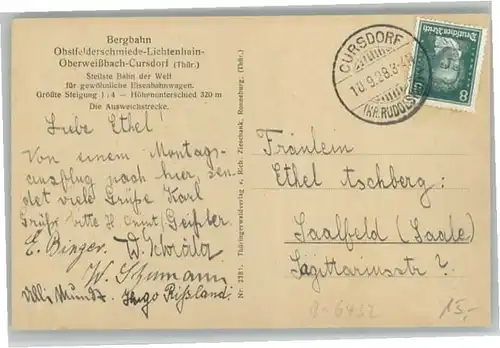 Bergbahn
Obstfelderschmiede-Lichtenhain-
Oberweißbach-Cursdorf (Thür.)
Steilste Bahn der Welt
für gewöhnliche Eisenbahnwagen.
Größte Steigung 1:4 - Höhenunterschied 320 m
Die Ausweichstrecke.
Liebe Ethel!
Von einem Montags-
ausflug nach hier, sen-
det viele Grüße Karl
Grüße bitte H. Geißler.
E. Binger. W.
W. Schumann
Willi Mundt. Hugo Rißland.
Nr. 2381. Thüringerwaldverlag v. Rich. Zieschank, Ronneburg (Thür.)
CURSDORF
10.9.28.3-4N
(KR. RUDOLST.)
Deutsches Reich
8
Fräulein
Ethel Aschberg:
Saalfeld (Saale)
Sagittariusstr ?
15,-